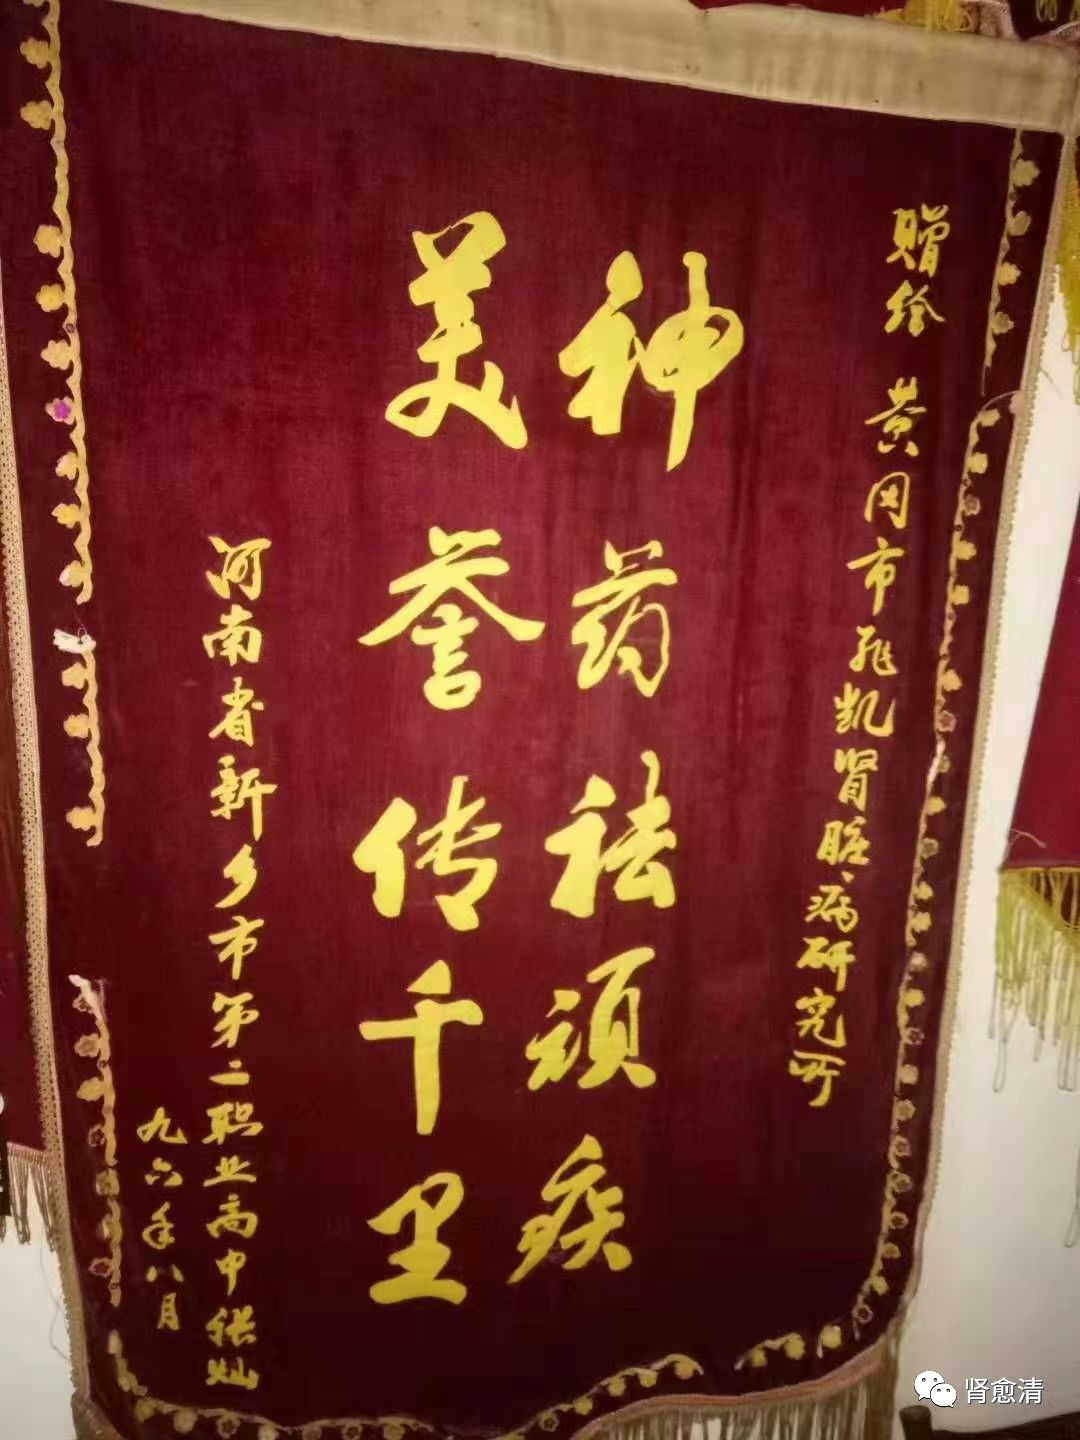 赠给 黄冈市飛凯肾脏病研究所
神药祛顽疾
美誉传千里
河南省新乡市第二职业高中张灿
九六年八月
肾愈清